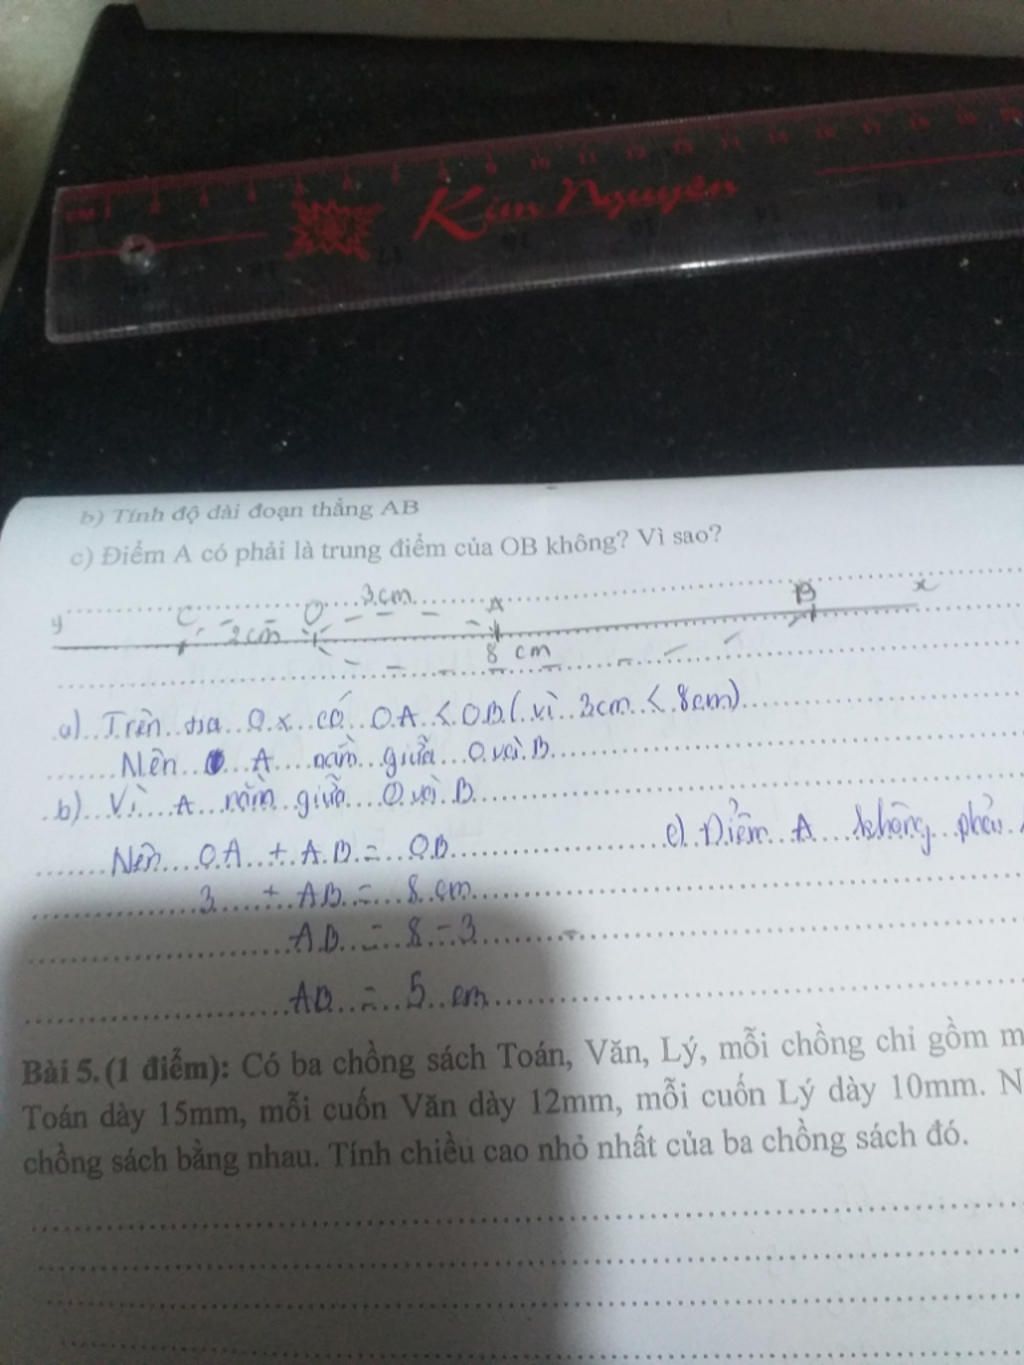 CM 1 2 3 4 5 6 7 8 9 10 11 12 13 14 15 16 17 18 19 20
Kim Nguyên
b) Tính độ dài đoạn thẳng AB
c) Điểm A có phải là trung điểm của OB không? Vì sao?
y C 2cm O 3cm A B x
8 cm
a) Trên tia Ox có OA < OB (vì 3cm < 8cm)
Nên A nằm giữa O và B
b) Vì A nằm giữa O và B
Nên OA + AB = OB
c) Điểm A không phải
3 + AB = 8 cm
AB = 8 - 3
AB = 5 cm
Bài 5. (1 điểm): Có ba chồng sách Toán, Văn, Lý, mỗi chồng chỉ gồm m
Toán dày 15mm, mỗi cuốn Văn dày 12mm, mỗi cuốn Lý dày 10mm. N
chồng sách bằng nhau. Tính chiều cao nhỏ nhất của ba chồng sách đó.